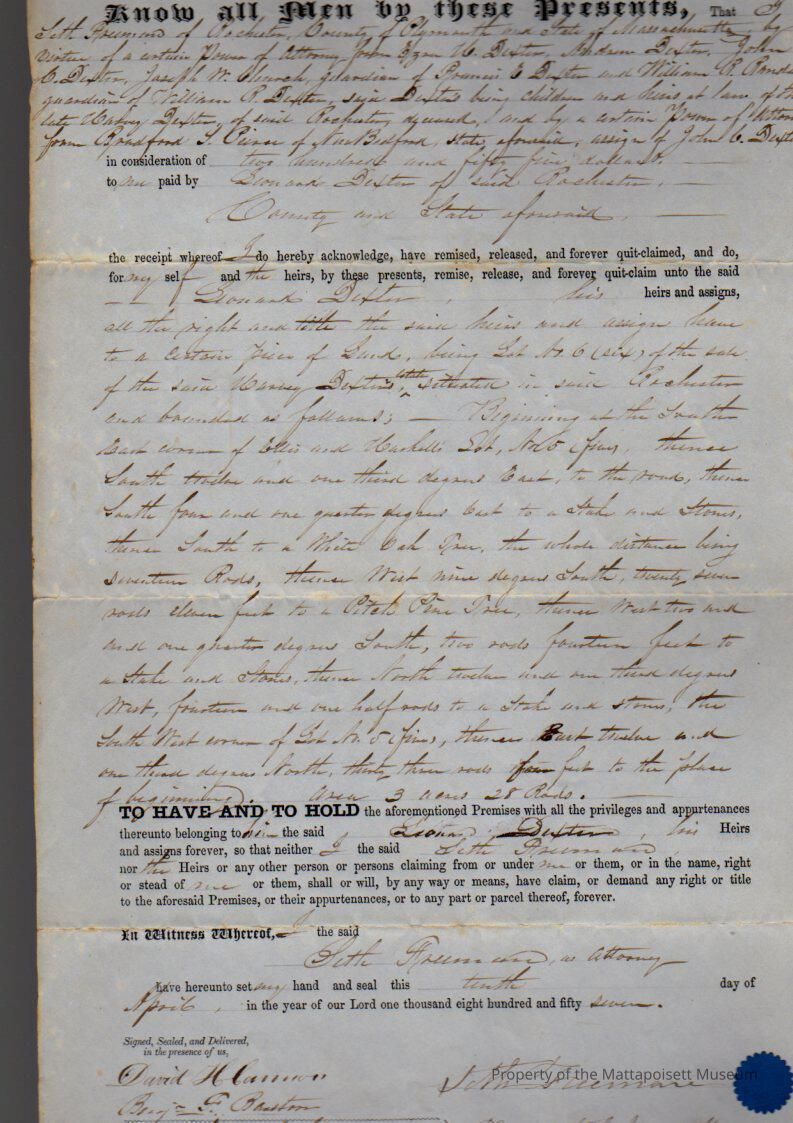 Know all Men by these Presents, That I
Seth Freeman of Rochester, County of Plymouth and State of Massachusetts by
virtue of a certain Power of Attorney from H. Dexter, Andrew Dexter, John
C. Dexter, Joseph W. Church, guardian of Francis E Dexter and William R. Rand
guardian of William P. Dexter, said Dexters being children and heirs at law of the
late Harvey Dexter, of said Rochester, deceased, and by a certain Power of Attor
from Bradford S. Peirce of New Bedford, state aforesaid, assign of John C. Dext
in consideration of two hundred and fifty five dollars,
to me paid by Leonard Dexter of said Rochester,
County and State aforesaid,
the receipt whereof I do hereby acknowledge, have remised, released, and forever quit-claimed, and do,
for my self and the heirs, by these presents, remise, release, and forever quit-claim unto the said
Leonard Dexter, his heirs and assigns,
all the right and title the said heirs and assign have
to a certain piece of Land, being Lot No 6 (six) of the sale
of the said Harvey Dexter's, situated in said Rochester
and bounded as follows; — Beginning at the South
East corner of Ellis and Haskell's Lot, No 5 (five), thence
South twelve and one third degrees East, to the road, thence
South four and one quarter degrees East to a Stake and Stones,
thence South to a White Oak Tree, the whole distance being
seventeen Rods, thence West nine degrees South, twenty seven
rods eleven feet to a Pitch Pine Tree, thence West two and
and one quarter degrees South, two rods fourteen feet to
a Stake and Stones, thence North twelve and one third degrees
West, fourteen and one half rods to a Stake and stones, the
South West corner of Lot No. 5 (five), thence East twelve and
one third degrees North, thirty three rods four feet to the place
of beginning. Area 3 acres 28 Rods.
TO HAVE AND TO HOLD the aforementioned Premises with all the privileges and appurtenances
thereunto belonging to him the said Leonard Dexter, his Heirs
and assigns forever, so that neither I the said Seth Freeman,
nor the Heirs or any other person or persons claiming from or under me or them, or in the name, right
or stead of me or them, shall or will, by any way or means, have claim, or demand any right or title
to the aforesaid Premises, or their appurtenances, or to any part or parcel thereof, forever.
In Witness Whereof, I the said
Seth Freeman, as Attorney
have hereunto set my hand and seal this tenth day of
April, in the year of our Lord one thousand eight hundred and fifty seven.
Signed, Sealed, and Delivered,
in the presence of us,
David H Cannon
Benj F. Barstow
Seth Freeman
Property of the Mattapoisett Museum